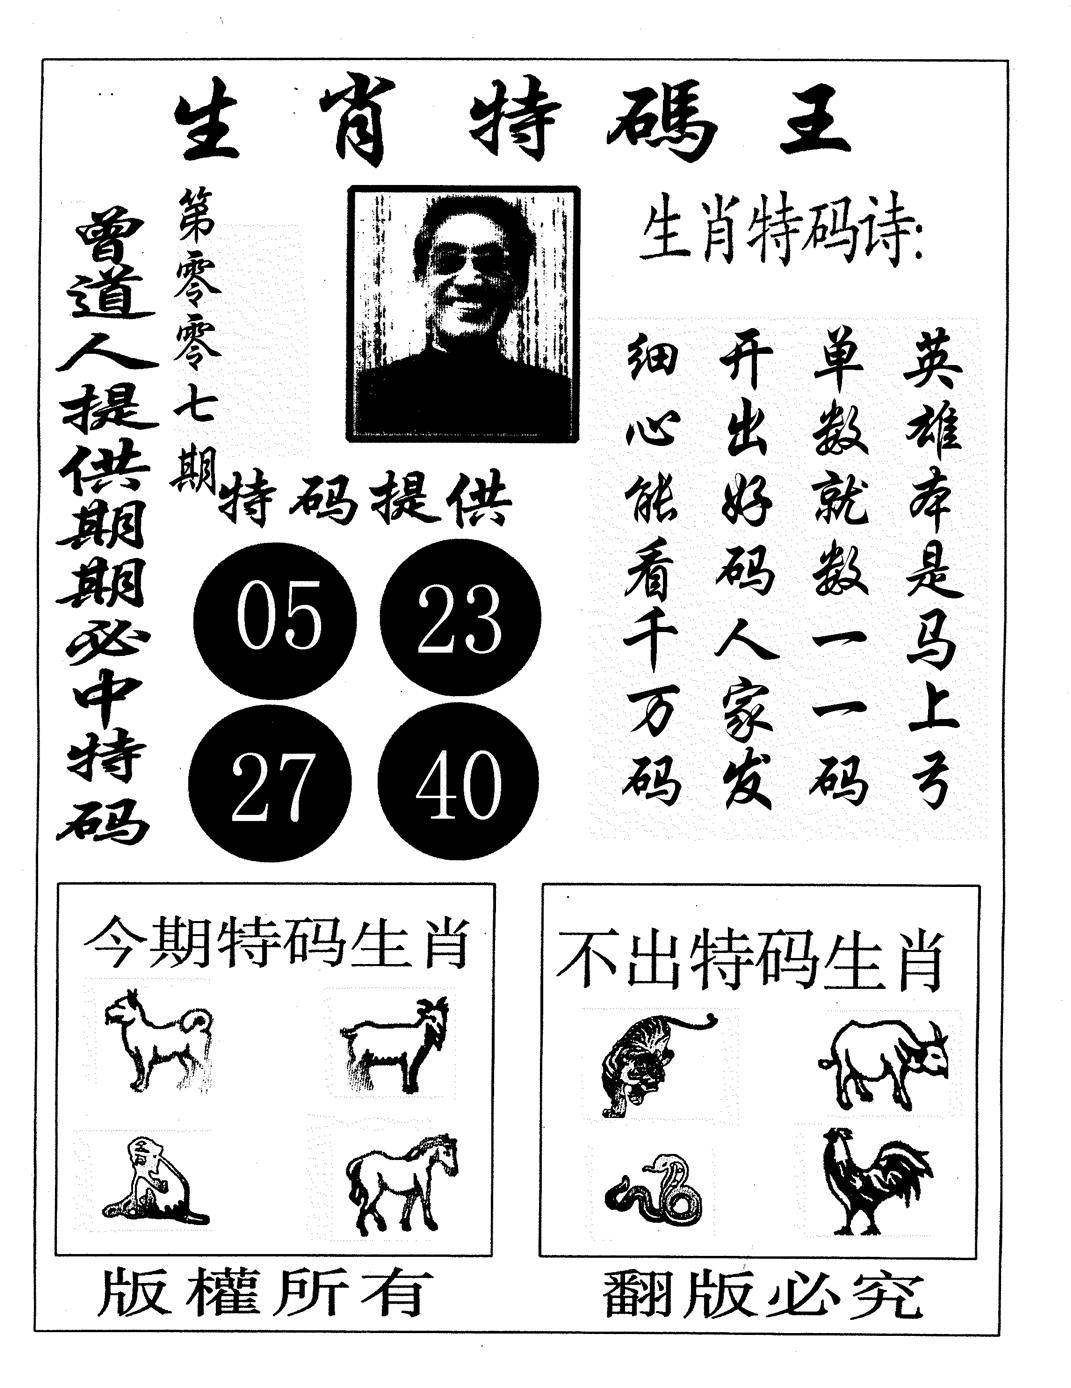 生肖特碼王
曾道人提供期期必中特码
第零零七期
生肖特码诗:
英雄本是马上弓
单数就数一一码
开出好码人家发
细心能看千万码
特码提供
05 23
27 40
今期特码生肖
不出特码生肖
版權所有
翻版必究